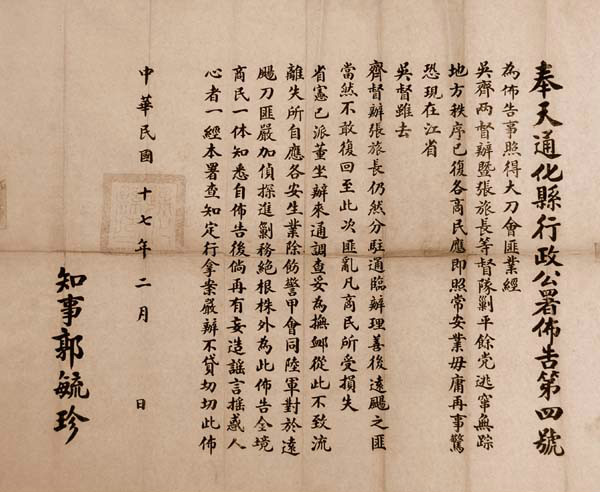 奉天通化縣行政公署佈告第四號
為佈告事照得大刀會匪業經
吳齊兩督辦暨張旅長等督隊剿平餘党逃竄無踪
地方秩序已復各商民應即照常安業毋庸再事驚
恐現在江省
吳督雖去
齊督辦張旅長仍然分駐通臨辦理善後遠颺之匪
當然不敢復回至此次匪亂凡商民所受損失
省憲已派董坐辦來通調查妥為撫卹從此不致流
離失所自應各安生業除飭警甲會同陸軍對於遠
颺刀匪嚴加偵探進剿務絕根株外為此佈告全境
商民一体知悉自佈告後倘再有妄造謠言搖惑人
心者一經本署查知定行拿案嚴辦不貸切切此佈
中華民國十七年二月 日
知事郭毓珍